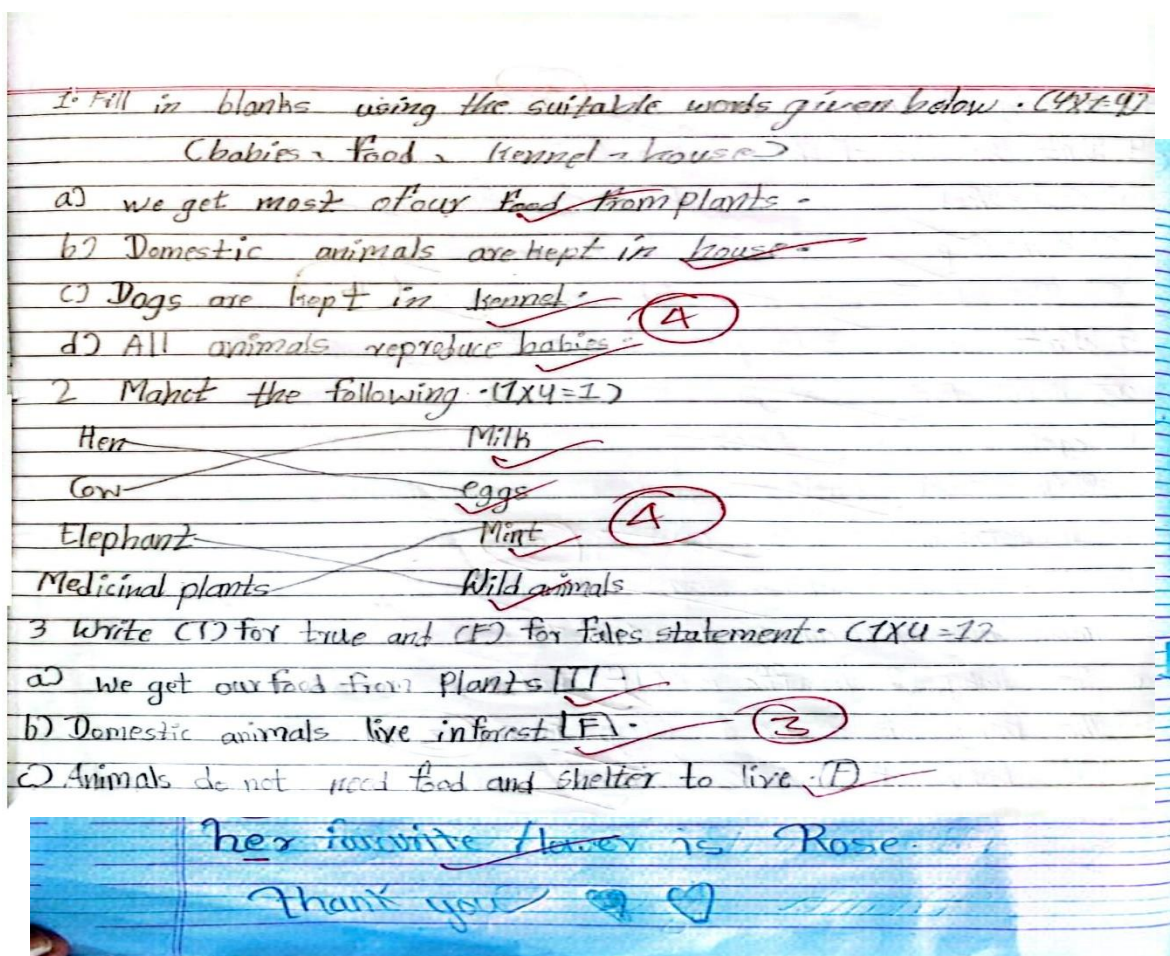 1. Fill in blanks using the suitable words given below. (4X1=4)
(babies, food, kennel, house)
a) we get most of our food from plants.
b) Domestic animals are kept in house.
c) Dogs are kept in kennel.
4
d) All animals reproduce babies.
2 Mahct the following. (1X4=1)
Hen Milk
Cow eggs
4
Elephant Mint
Medicinal plants Wild animals
3 Write (T) for true and (F) for fales statement. (1X4=1)
a) we get our food from Plants [T]
b) Domestic animals live in forest [F].
3
c) Animals do not need food and shelter to live. (F)
her favurite flower is Rose.
Thank you